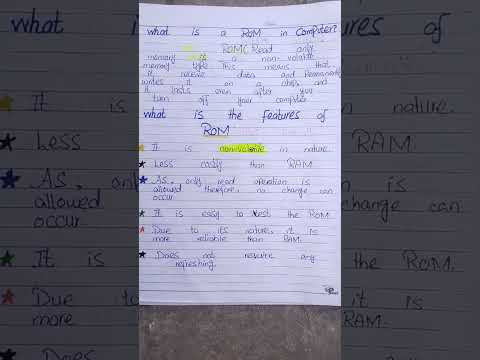 what is a ROM in Computer?
ROM( Read only
memory is a non-volatile
memory type. This means that
it receive data and Permanently
writes it on a chip, and
it lasts even after you
turn off your computer
what is the features of
ROM
It is nonvolatile in nature.
Less costly than RAM.
As, only read operation is
allowed therefore, no change can
occur
It is easy to test the ROM.
Due to its nature, it is
more reliable than RAM.
Does not require any
refreshing.